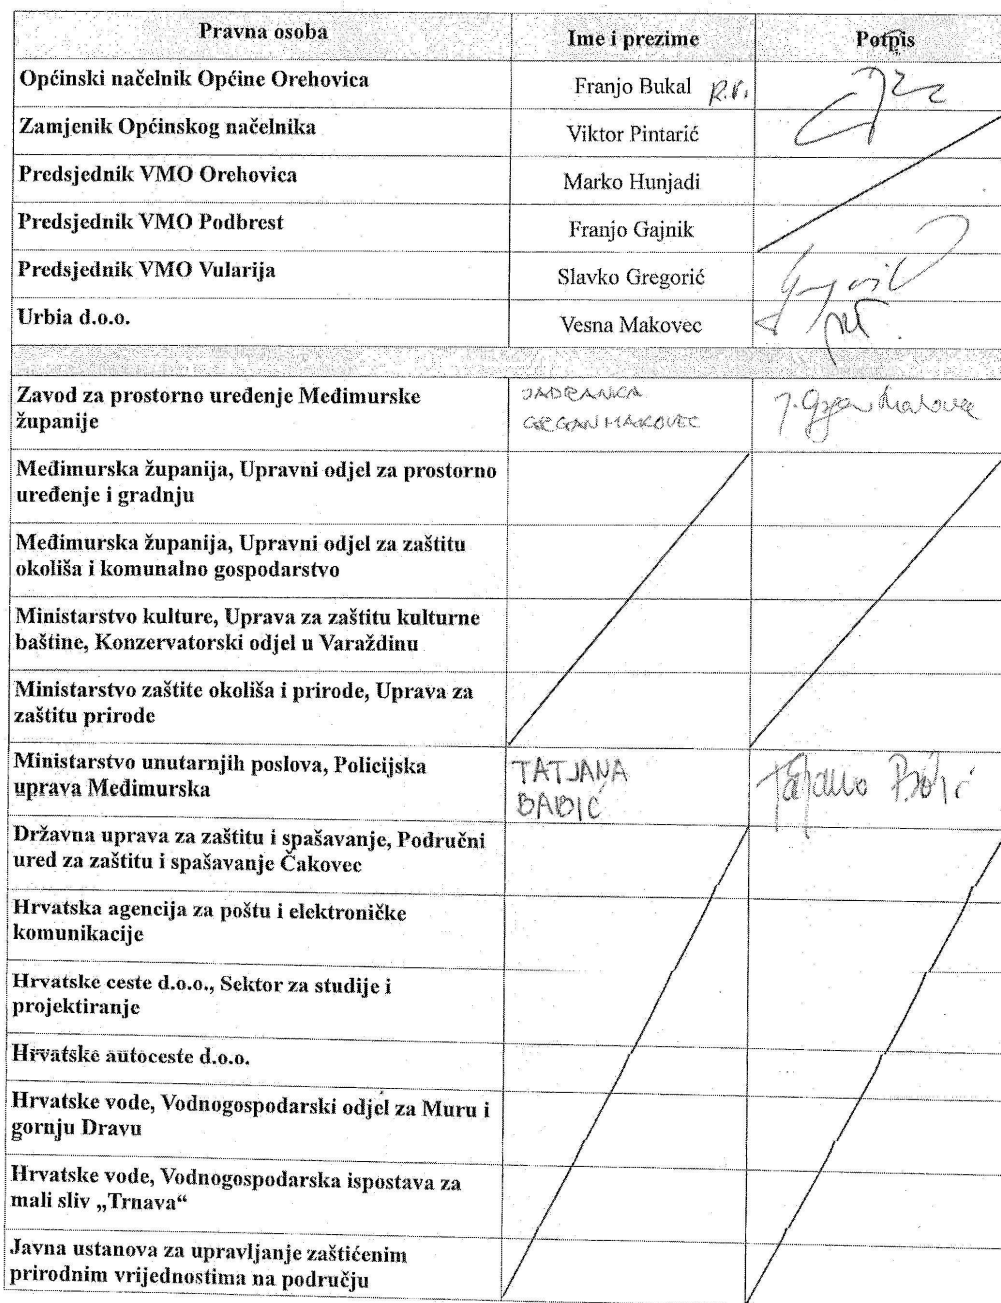 Pravna osoba Ime i prezime Potpis
Općinski načelnik Općine Orehovica Franjo Bukal
Zamjenik Općinskog načelnika Viktor Pintarić
Predsjednik VMO Orehovica Marko Hunjadi
Predsjednik VMO Podbrest Franjo Gajnik
Predsjednik VMO Vularija Slavko Gregorić
Urbia d.o.o. Vesna Makovec
Zavod za prostorno uređenje Međimurske JADRANKA
županije GRGAN MAKOVEC
Međimurska županija, Upravni odjel za prostorno
uređenje i gradnju
Međimurska županija, Upravni odjel za zaštitu
okoliša i komunalno gospodarstvo
Ministarstvo kulture, Uprava za zaštitu kulturne
baštine, Konzervatorski odjel u Varaždinu
Ministarstvo zaštite okoliša i prirode, Uprava za
zaštitu prirode
Ministarstvo unutarnjih poslova, Policijska TATJANA
uprava Međimurska BABIĆ
Državna uprava za zaštitu i spašavanje, Područni
ured za zaštitu i spašavanje Čakovec
Hrvatska agencija za poštu i elektroničke
komunikacije
Hrvatske ceste d.o.o., Sektor za studije i
projektiranje
Hrvatske autoceste d.o.o.
Hrvatske vode, Vodnogospodarski odjel za Muru i
gornju Dravu
Hrvatske vode, Vodnogospodarska ispostava za
mali sliv „Trnava“
Javna ustanova za upravljanje zaštićenim
prirodnim vrijednostima na području